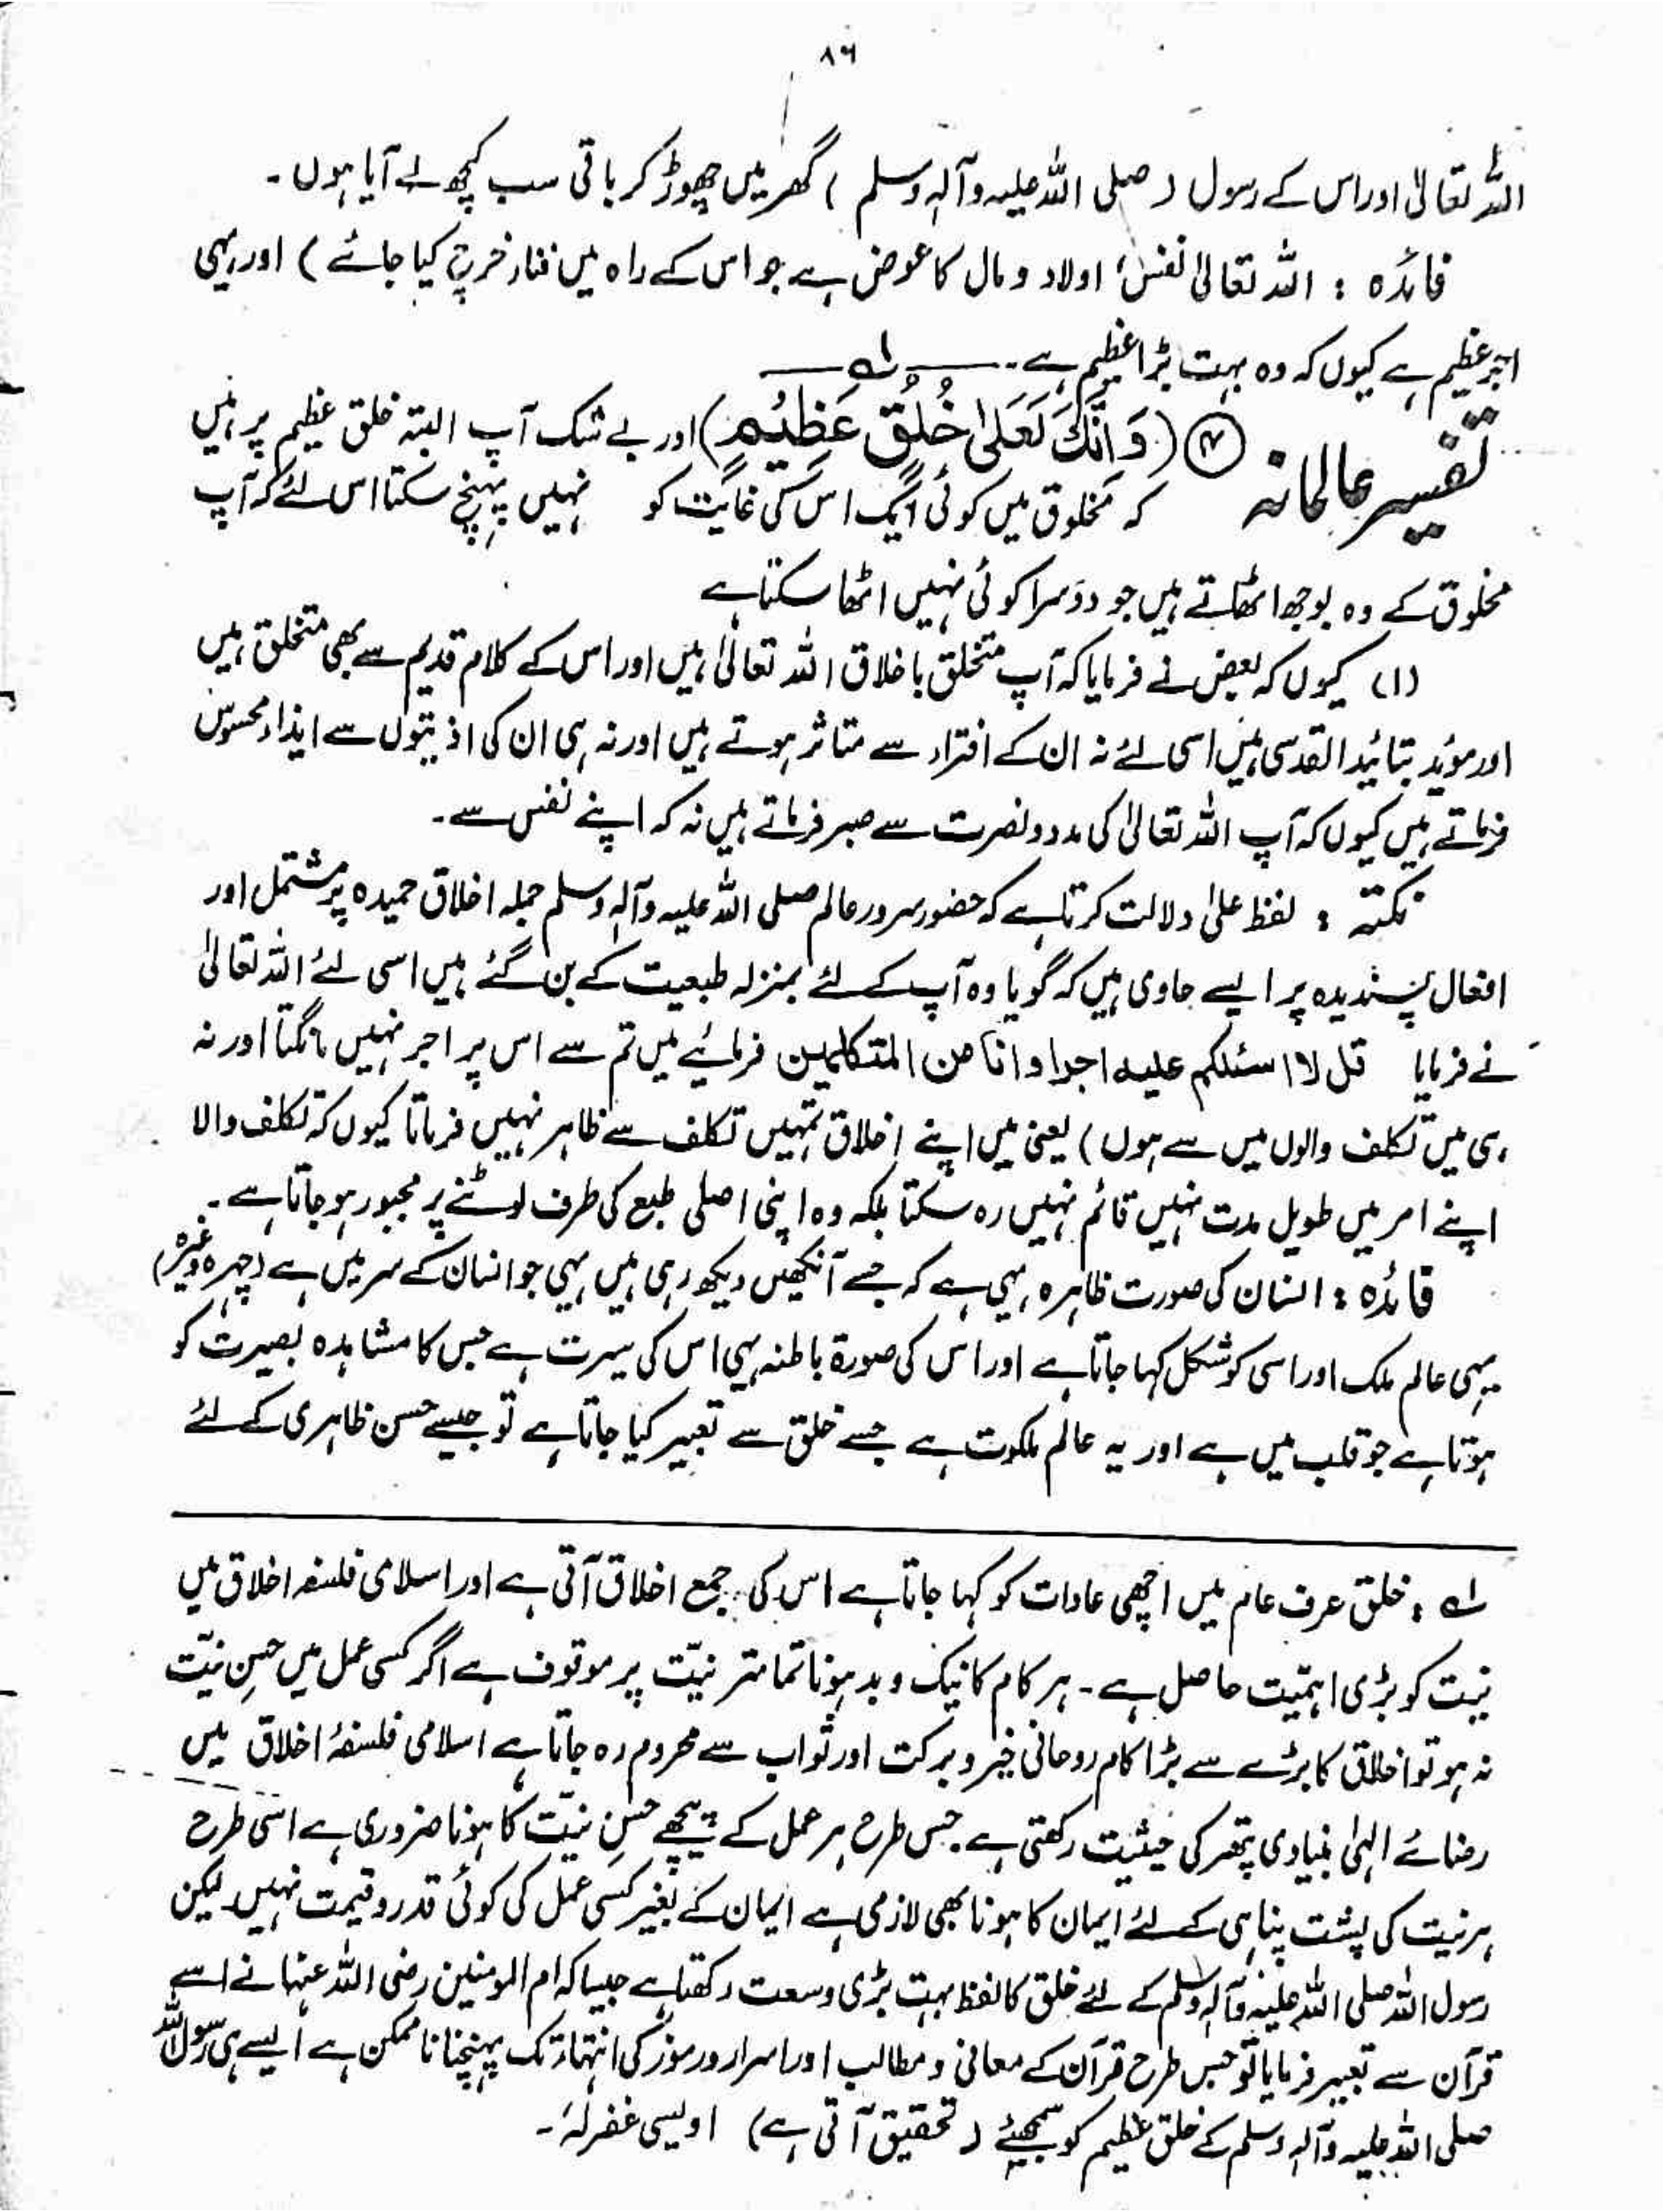 ۸۶
اللہ تعالیٰ اور اس کے رسول (صلی اللہ علیہ وآلہٖ وسلم) گھر میں چھوڑ کر باقی سب کچھ لے آیا ہوں۔
فائدہ : اللہ تعالیٰ نفس، اولاد و مال کا عوض ہے جو اس کے راہ میں فنا (خرچ کیا جائے) اور یہی
اجر عظیم ہے کیوں کہ وہ بہت بڑا عظیم ہے۔
تفسیر عالمانہ (وَإِنَّكَ لَعَلٰى خُلُقٍ عَظِيْمٍ) اور بے شک آپ البتہ خلق عظیم پر ہیں
کہ مخلوق میں کوئی ایک اس کی غایت کو نہیں پہنچ سکتا اس لئے کہ آپ
مخلوق کے وہ بوجھ اٹھاتے ہیں جو دوسرا کوئی نہیں اٹھا سکتا ہے
(۱) کیوں کہ بعض نے فرمایا کہ آپ متخلق باخلاق اللہ تعالیٰ ہیں اور اس کے کلام قدیم سے بھی متخلق ہیں
اور موید بتائید القدسی ہیں اسی لئے نہ ان کے افتراء سے متاثر ہوتے ہیں اور نہ ہی ان کی اذیتوں سے ایذاء محسوس
فرماتے ہیں کیوں کہ آپ اللہ تعالیٰ کی مدد و نصرت سے صبر فرماتے ہیں نہ کہ اپنے نفس سے۔
نکتہ : لفظ علیٰ دلالت کرتا ہے کہ حضور سرور عالم صلی اللہ علیہ وآلہٖ وسلم جملہ اخلاق حمیدہ پر مشتمل اور
افعال پسندیدہ پر ایسے حاوی ہیں کہ گویا وہ آپ کے لئے بمنزلہ طبعیت کے بن گئے ہیں اسی لئے اللہ تعالیٰ
نے فرمایا قل لا اسئلکم علیہ اجرا و انا من المتکلمین فرمائیے میں تم سے اس پر اجر نہیں مانگتا اور نہ
ہی میں تکلف والوں میں سے ہوں) یعنی میں اپنے اخلاق تمہیں تکلف سے ظاہر نہیں فرماتا کیوں کہ تکلف والا
اپنے امر میں طویل مدت نہیں قائم نہیں رہ سکتا بلکہ وہ اپنی اصلی طبع کی طرف لوٹنے پر مجبور ہو جاتا ہے۔
فائدہ : انسان کی صورت ظاہرہ یہی ہے کہ جسے آنکھیں دیکھ رہی ہیں یہی جو انسان کے سر میں ہے (چہرہ وغیرہ)
یہی عالم ملک اور اسی کو شکل کہا جاتا ہے اور اس کی صورۃ باطنہ یہی اس کی سیرت ہے جس کا مشاہدہ بصیرت کو
ہوتا ہے جو قلب میں ہے اور یہ عالم ملکوت ہے جسے خلق سے تعبیر کیا جاتا ہے تو جیسے حسن ظاہری کے لئے
لہ : خلق عرف عام میں اچھی عادات کو کہا جاتا ہے اس کی جمع اخلاق آتی ہے اور اسلامی فلسفہ اخلاق میں
نیت کو بڑی اہمیّت حاصل ہے۔ ہر کام کا نیک و بد ہونا تمامتر نیّت پر موقوف ہے اگر کسی عمل میں حسنِ نیّت
نہ ہو تو اخلاق کا بڑے سے بڑا کام روحانی خیر و برکت اور ثواب سے محروم رہ جاتا ہے اسلامی فلسفۂ اخلاق میں
رضائے الہٰی بنیادی پتھر کی حیثیت رکھتی ہے۔ جس طرح ہر عمل کے پیچھے حسنِ نیّت کا ہونا ضروری ہے اسی طرح
ہر نیت کی پشت پناہی کے لئے ایمان کا ہونا بھی لازمی ہے ایمان کے بغیر کسی عمل کی کوئی قدر و قیمت نہیں۔ لیکن
رسول اللہ صلی اللہ علیہ وآلہٖ وسلم کے لئے خلق کا لفظ بہت بڑی وسعت رکھتا ہے جیسا کہ ام المومنین رضی اللہ عنہا نے اسے
قرآن سے تعبیر فرمایا تو جس طرح قرآن کے معانی و مطالب اور اسرار و رموز کی انتہاء تک پہنچنا ناممکن ہے ایسے ہی رسول اللہ
صلی اللہ علیہ وآلہٖ وسلم کے خلق عظیم کو سمجھئے (تحقیق آتی ہے) اویسی غفرلہٗ۔